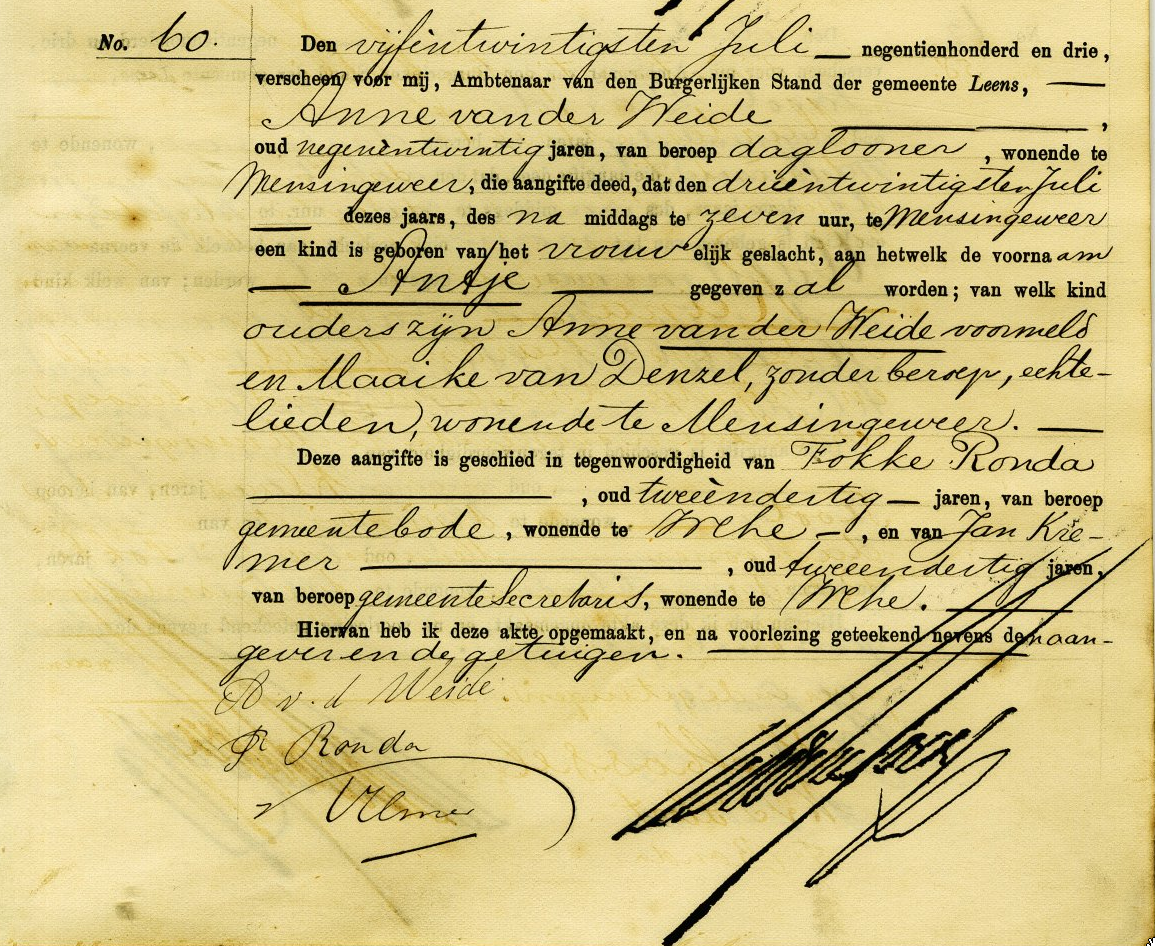 No. 60.
Den vijfentwintigsten Juli — negentienhonderd en drie,
verscheen voor mij, Ambtenaar van den Burgerlijken Stand der gemeente Leens, —
Anne van der Weide —,
oud negenentwintig jaren, van beroep daglooner, wonende te
Mensingeweer, die aangifte deed, dat den drieëntwintigsten Juli
— dezes jaars, des na middags te zeven uur, te Mensingeweer
een kind is geboren van het vrouwelijk geslacht, aan hetwelk de voornaam
— Antje — gegeven zal worden; van welk kind
ouders zijn Anne van der Weide voormeld
en Maaike van Denzel, zonder beroep, echte-
lieden, wonende te Mensingeweer. —
Deze aangifte is geschied in tegenwoordigheid van Fokke Ronda
—, oud tweeëndertig — jaren, van beroep
gemeentebode, wonende te Wehe —, en van Jan Kre-
mer —, oud tweeendertig jaren,
van beroep gemeentesecretaris, wonende te Wehe. —
Hiervan heb ik deze akte opgemaakt, en na voorlezing geteekend nevens den aan-
gever en de getuigen. —
A v. d Weide
F Ronda